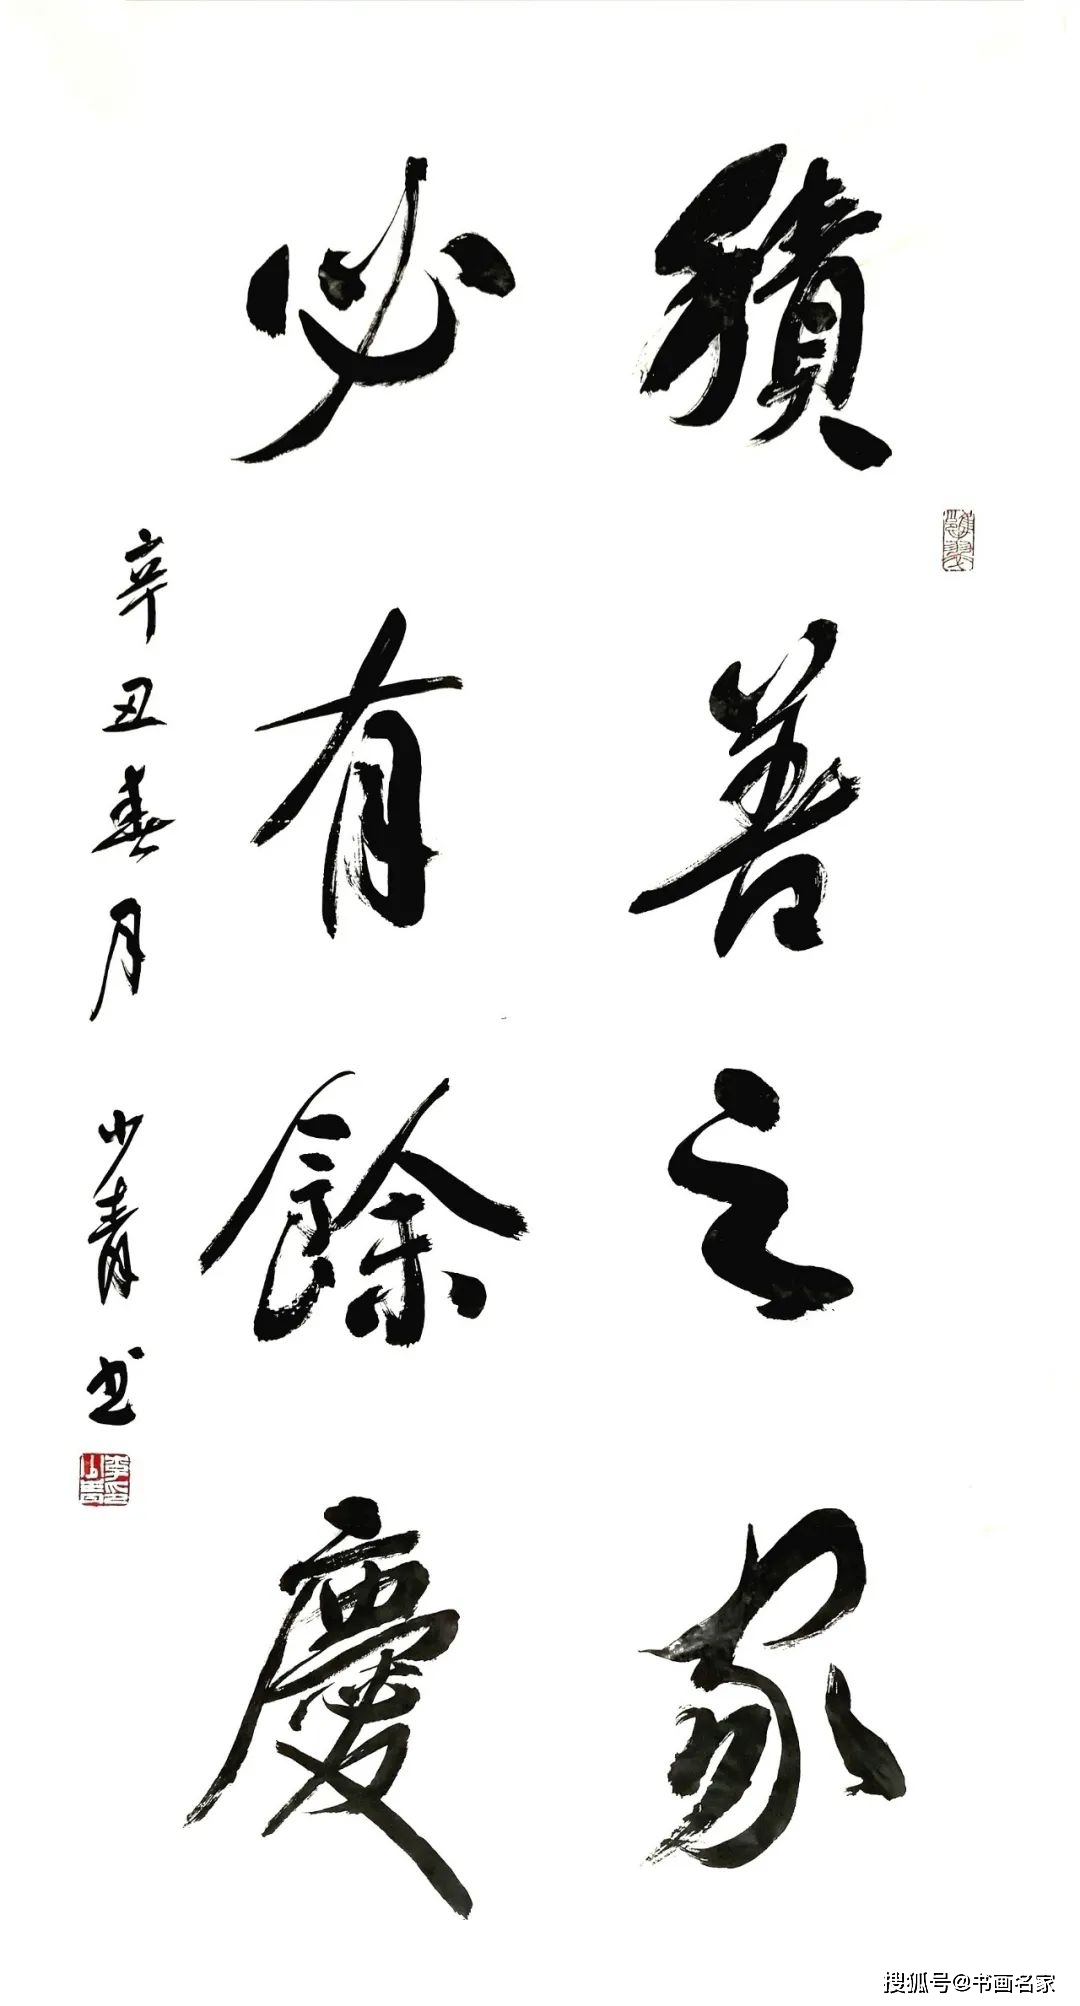 積善之家
必有餘慶
辛丑春月 少青书
李少青印
搜狐号@书画名家